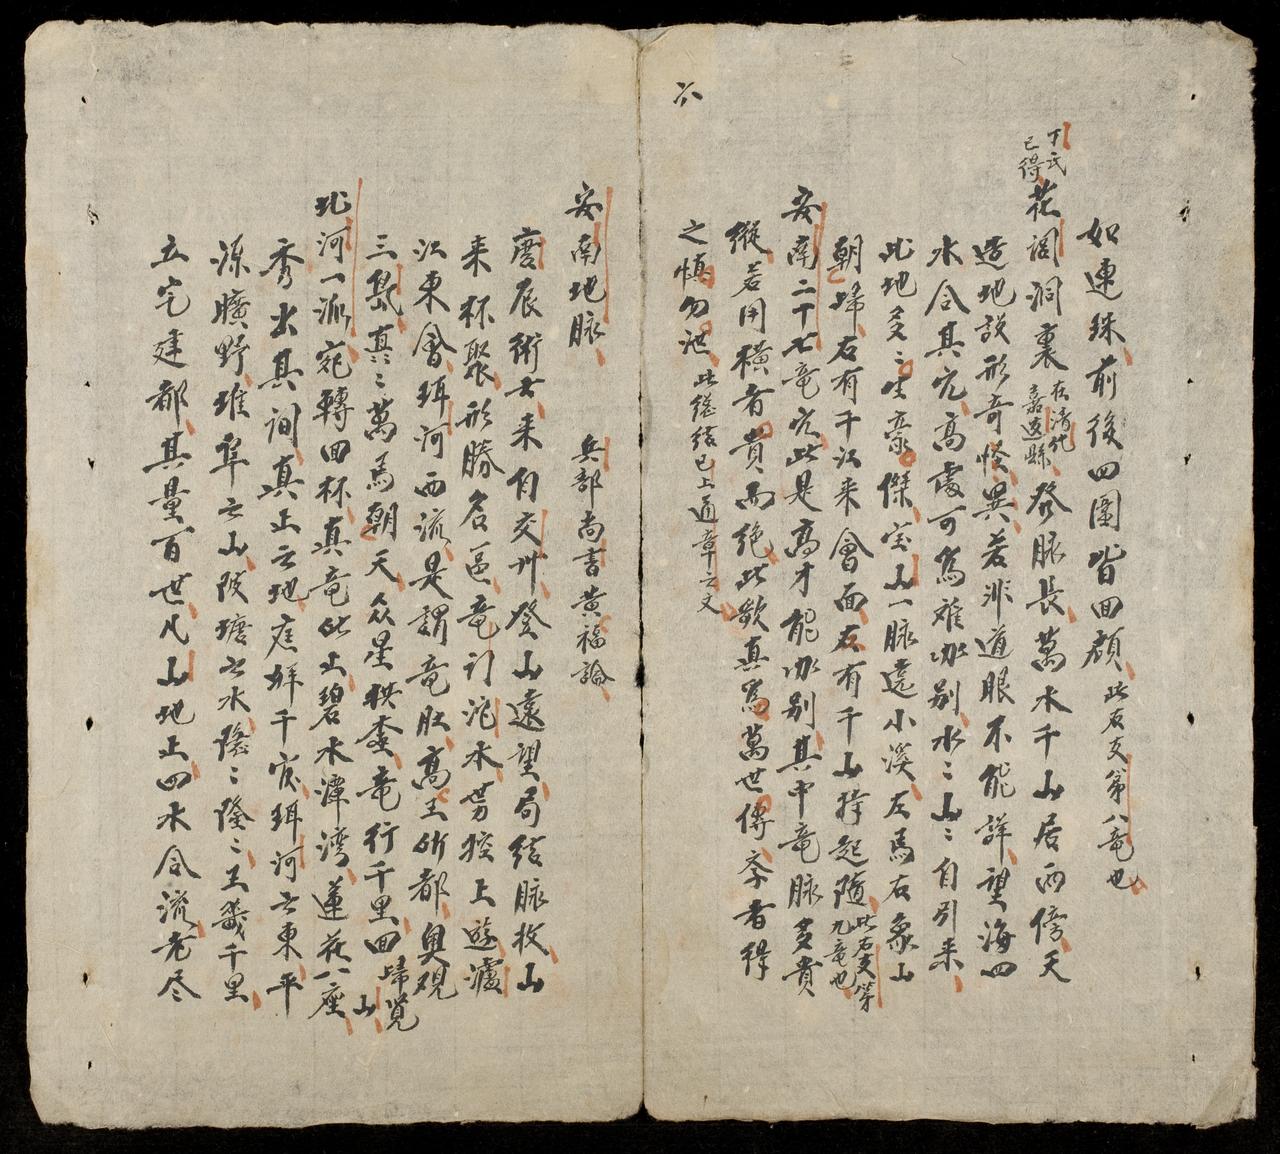 六
如連珠前後四圍皆回顧此右支第八竜也
丁氏已得
花閭洞裏在清化嘉遠縣發脉長萬水千山居両傍天
造地設形奇怪異若非道眼不能詳望海四
水合其穴高處可為难办別水〻山〻自引来
此地多〻生豪傑宝山一脉遠小溪左馬右象山
朝歸右有千江来會面左有千山擁起随此右支第九竜也
安南二十七竜穴此是高才能办別其中竜脉多貴
縱若用横者貴而絶此歌真為萬世傳李者得
之慎勿泄此総結已上通章之文
安南地脉 兵部尚書黄福論
度辰術士来自交州登山遠望局結脉枚山
来杯聚形勝名區竜门沱水劳控上遊瀘
江東會珥河西流是謂竜肚高王所都奥观
三島真〻萬馬朝天众星拱奎竜行千里回歸山覧
北河一派宛轉回杯真竜此止碧水潭湾蓮花八座
秀出其间真正之地庭辟千官珥河之東平
源曠野堆阜之山陂塘之水隱〻隆〻王畿千里
立宅建都其量百世凡山地止四水合流老尽